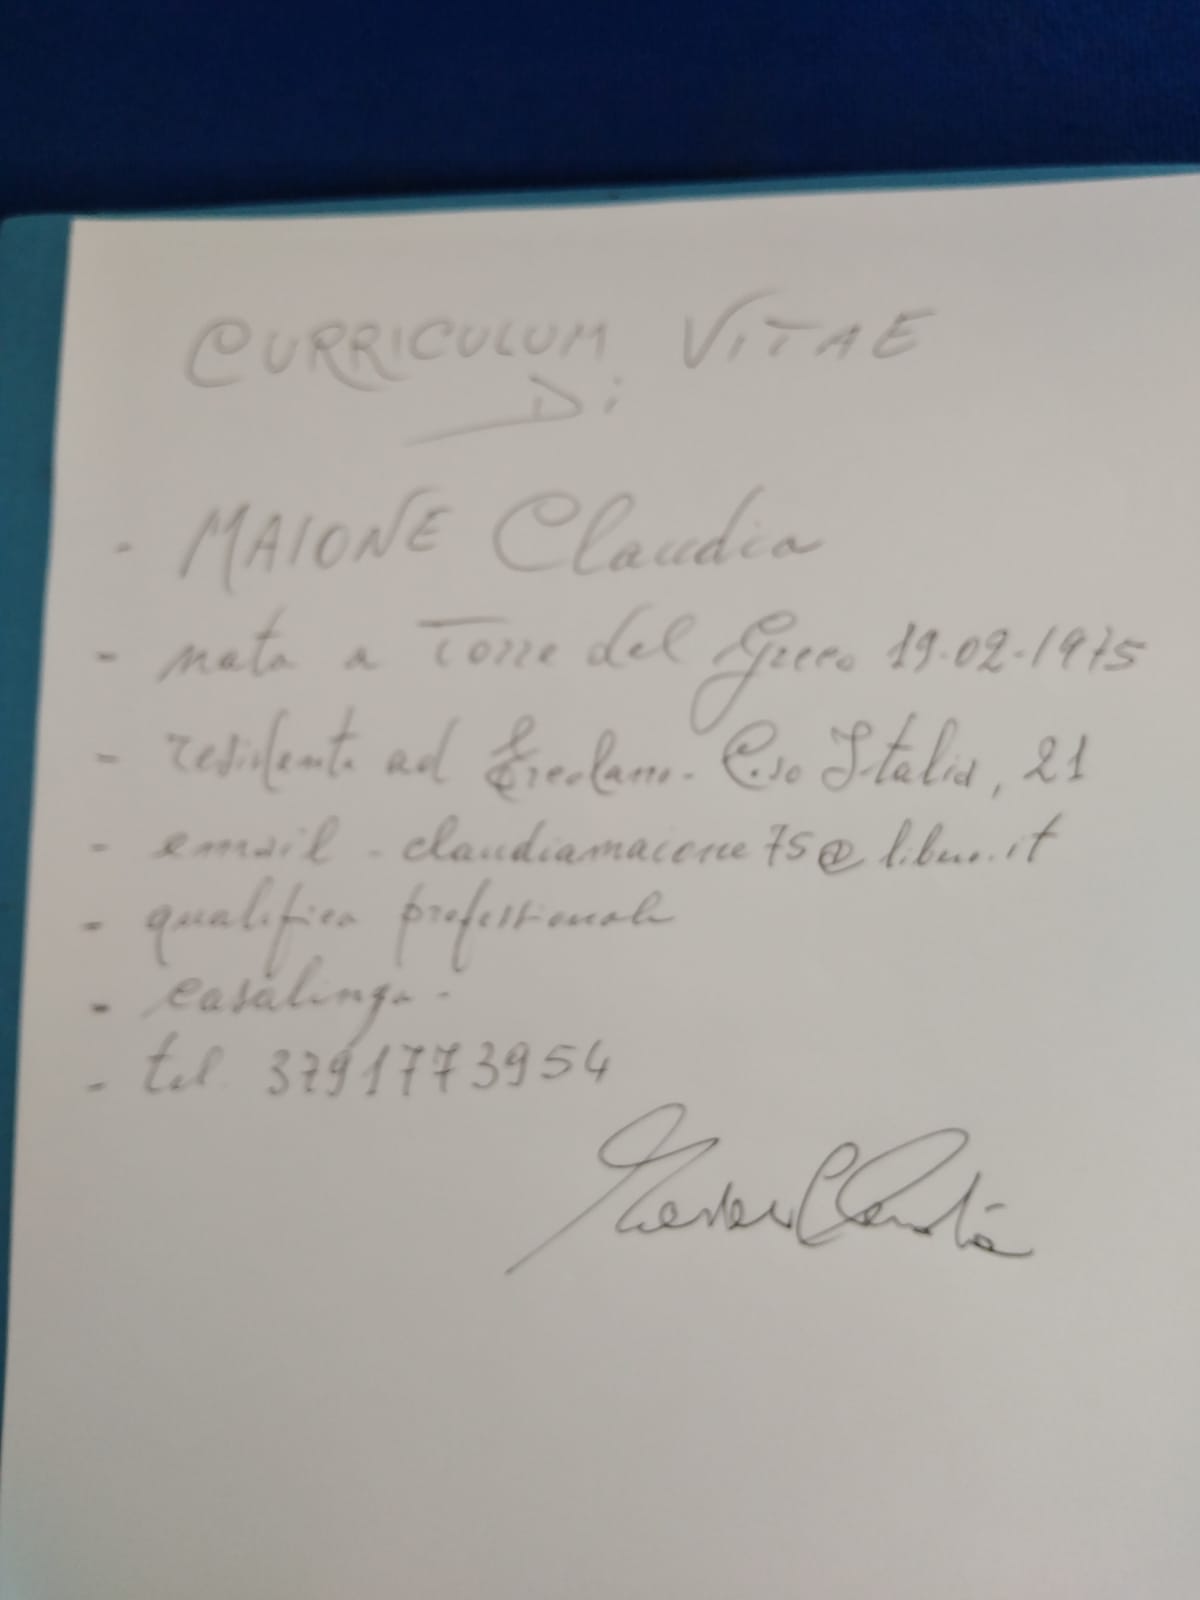 CURRICULUM VITAE
Di
- MAIONE Claudia
- nata a Torre del Greco 19-02-1975
- residente ad Ercolano. C.so Italia, 21
- email - claudiamaione75@libero.it
- qualifica professionale
- casalinga -
- tel. 3791773954
Claudia